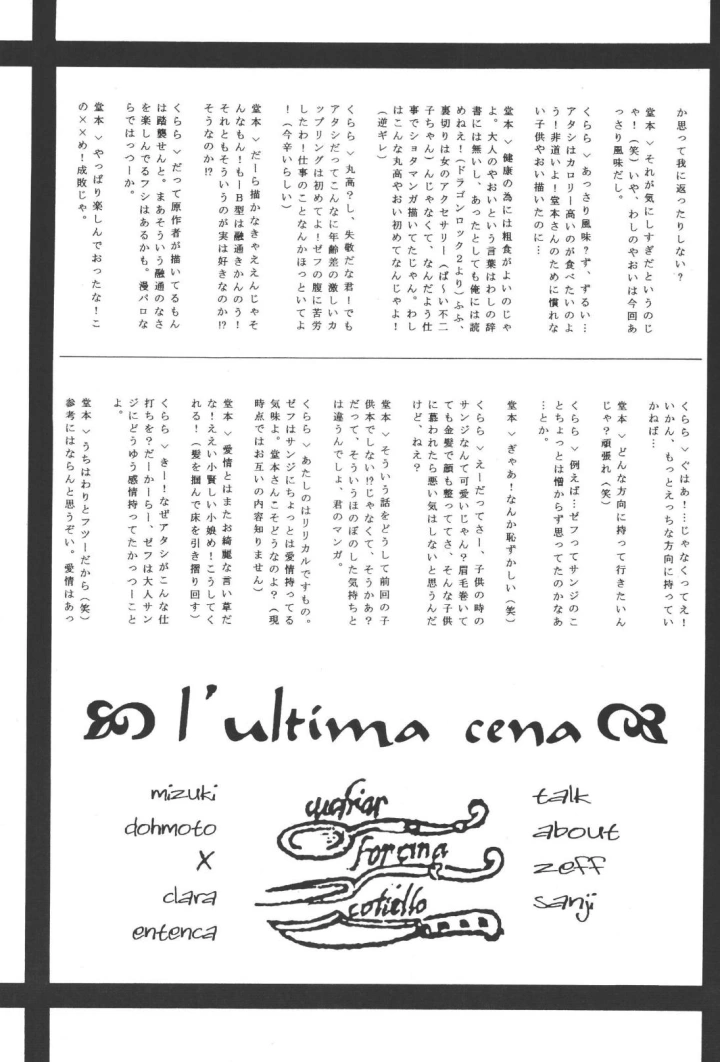 か思って我に返ったりしない？
堂本 > それが気にしすぎだというのじ
ゃ！（笑）いや、わしのやおいは今回あ
っさり風味だし。
くらら > あっさり風味？ず、ずるい…
アタシはカロリー高いのが食べたいのよ
う！非道いよ！堂本さんのために慣れな
い子供やおい描いたのに…
堂本 > 健康の為には粗食がよいのじゃ
よ。大人のやおいという言葉はわしの辞
書には無いし、あったとしても俺には読
めねえ！（ドラゴンロック２より）ふふ、
裏切りは女のアクセサリー（ば～い不二
子ちゃん）んじゃなくて、なんだよう仕
事でショタマンガ描いてたじゃん。わし
はこんな丸高やおい初めてなんじゃよ！
（逆ギレ）
くらら > 丸高？し、失敬だな君！でも
アタシだってこんなに年齢差の激しいカ
ップリングは初めてよ！ゼフの腹に苦労
したわ！仕事のことなんかほっといてよ
！（今辛いらしい）
堂本 > だーら描かなきゃええんじゃそ
んなもん！もーＢ型は融通きかんのう！
それともそういうのが実は好きなのか!?
そうなのか!?
くらら > だって原作者が描いてるもん
は踏襲せんと。まあそういう融通のなさ
を楽しんでるフシはあるかも。漫パロな
らではっつーか。
堂本 > やっぱり楽しんでおったな！こ
の××め！成敗じゃ。
くらら > ぐはあ！…じゃなくってえ！
いかん、もっとえっちな方向に持ってい
かねば…
堂本 > どんな方向に持って行きたいん
じゃ？頑張れ（笑）
くららら > 例えば…ゼフってサンジのこ
とちょっとは憎からず思ってたのかなあ
…とか。
堂本 > ぎゃあ！なんか恥ずかしい（笑）
くらら > えーだってさー、子供の時の
サンジなんて可愛いじゃん？眉毛巻いて
ても金髪で顔も整っててさ、そんな子供
に慕われたら悪い気はしないと思うんだ
けど、ねえ？
堂本 > そういう話をどうして前回の子
供本でしない!?じゃなくて、そうかあ？
だって、そういうほのぼのした気持ちと
は違うんでしょ、君のマンガ。
くらら > あたしのはリリカルですもの。
ゼフはサンジにちょっとは愛情持ってる
気味よ。堂本さんこそどうなのよ？（現
時点ではお互いの内容知りません）
堂本 > 愛情とはまたお綺麗な言い草だ
な！ええい小賢しい小娘め！こうしてく
れる！（髪を掴んで床を引き摺り回す）
くらら > きー！なぜアタシがこんな仕
打ちを？だーかーらー、ゼフは大人サン
ジにどうゆう感情持ってたかっつーこと
よ。
堂本 > うちはわりとフツーだから（笑）
参考にはならんと思うぞい。愛情はあっ
l'ultima cena
mizuki
dohmoto
X
clara
entenca
forcina
coltello
talk
about
zeff
sanji